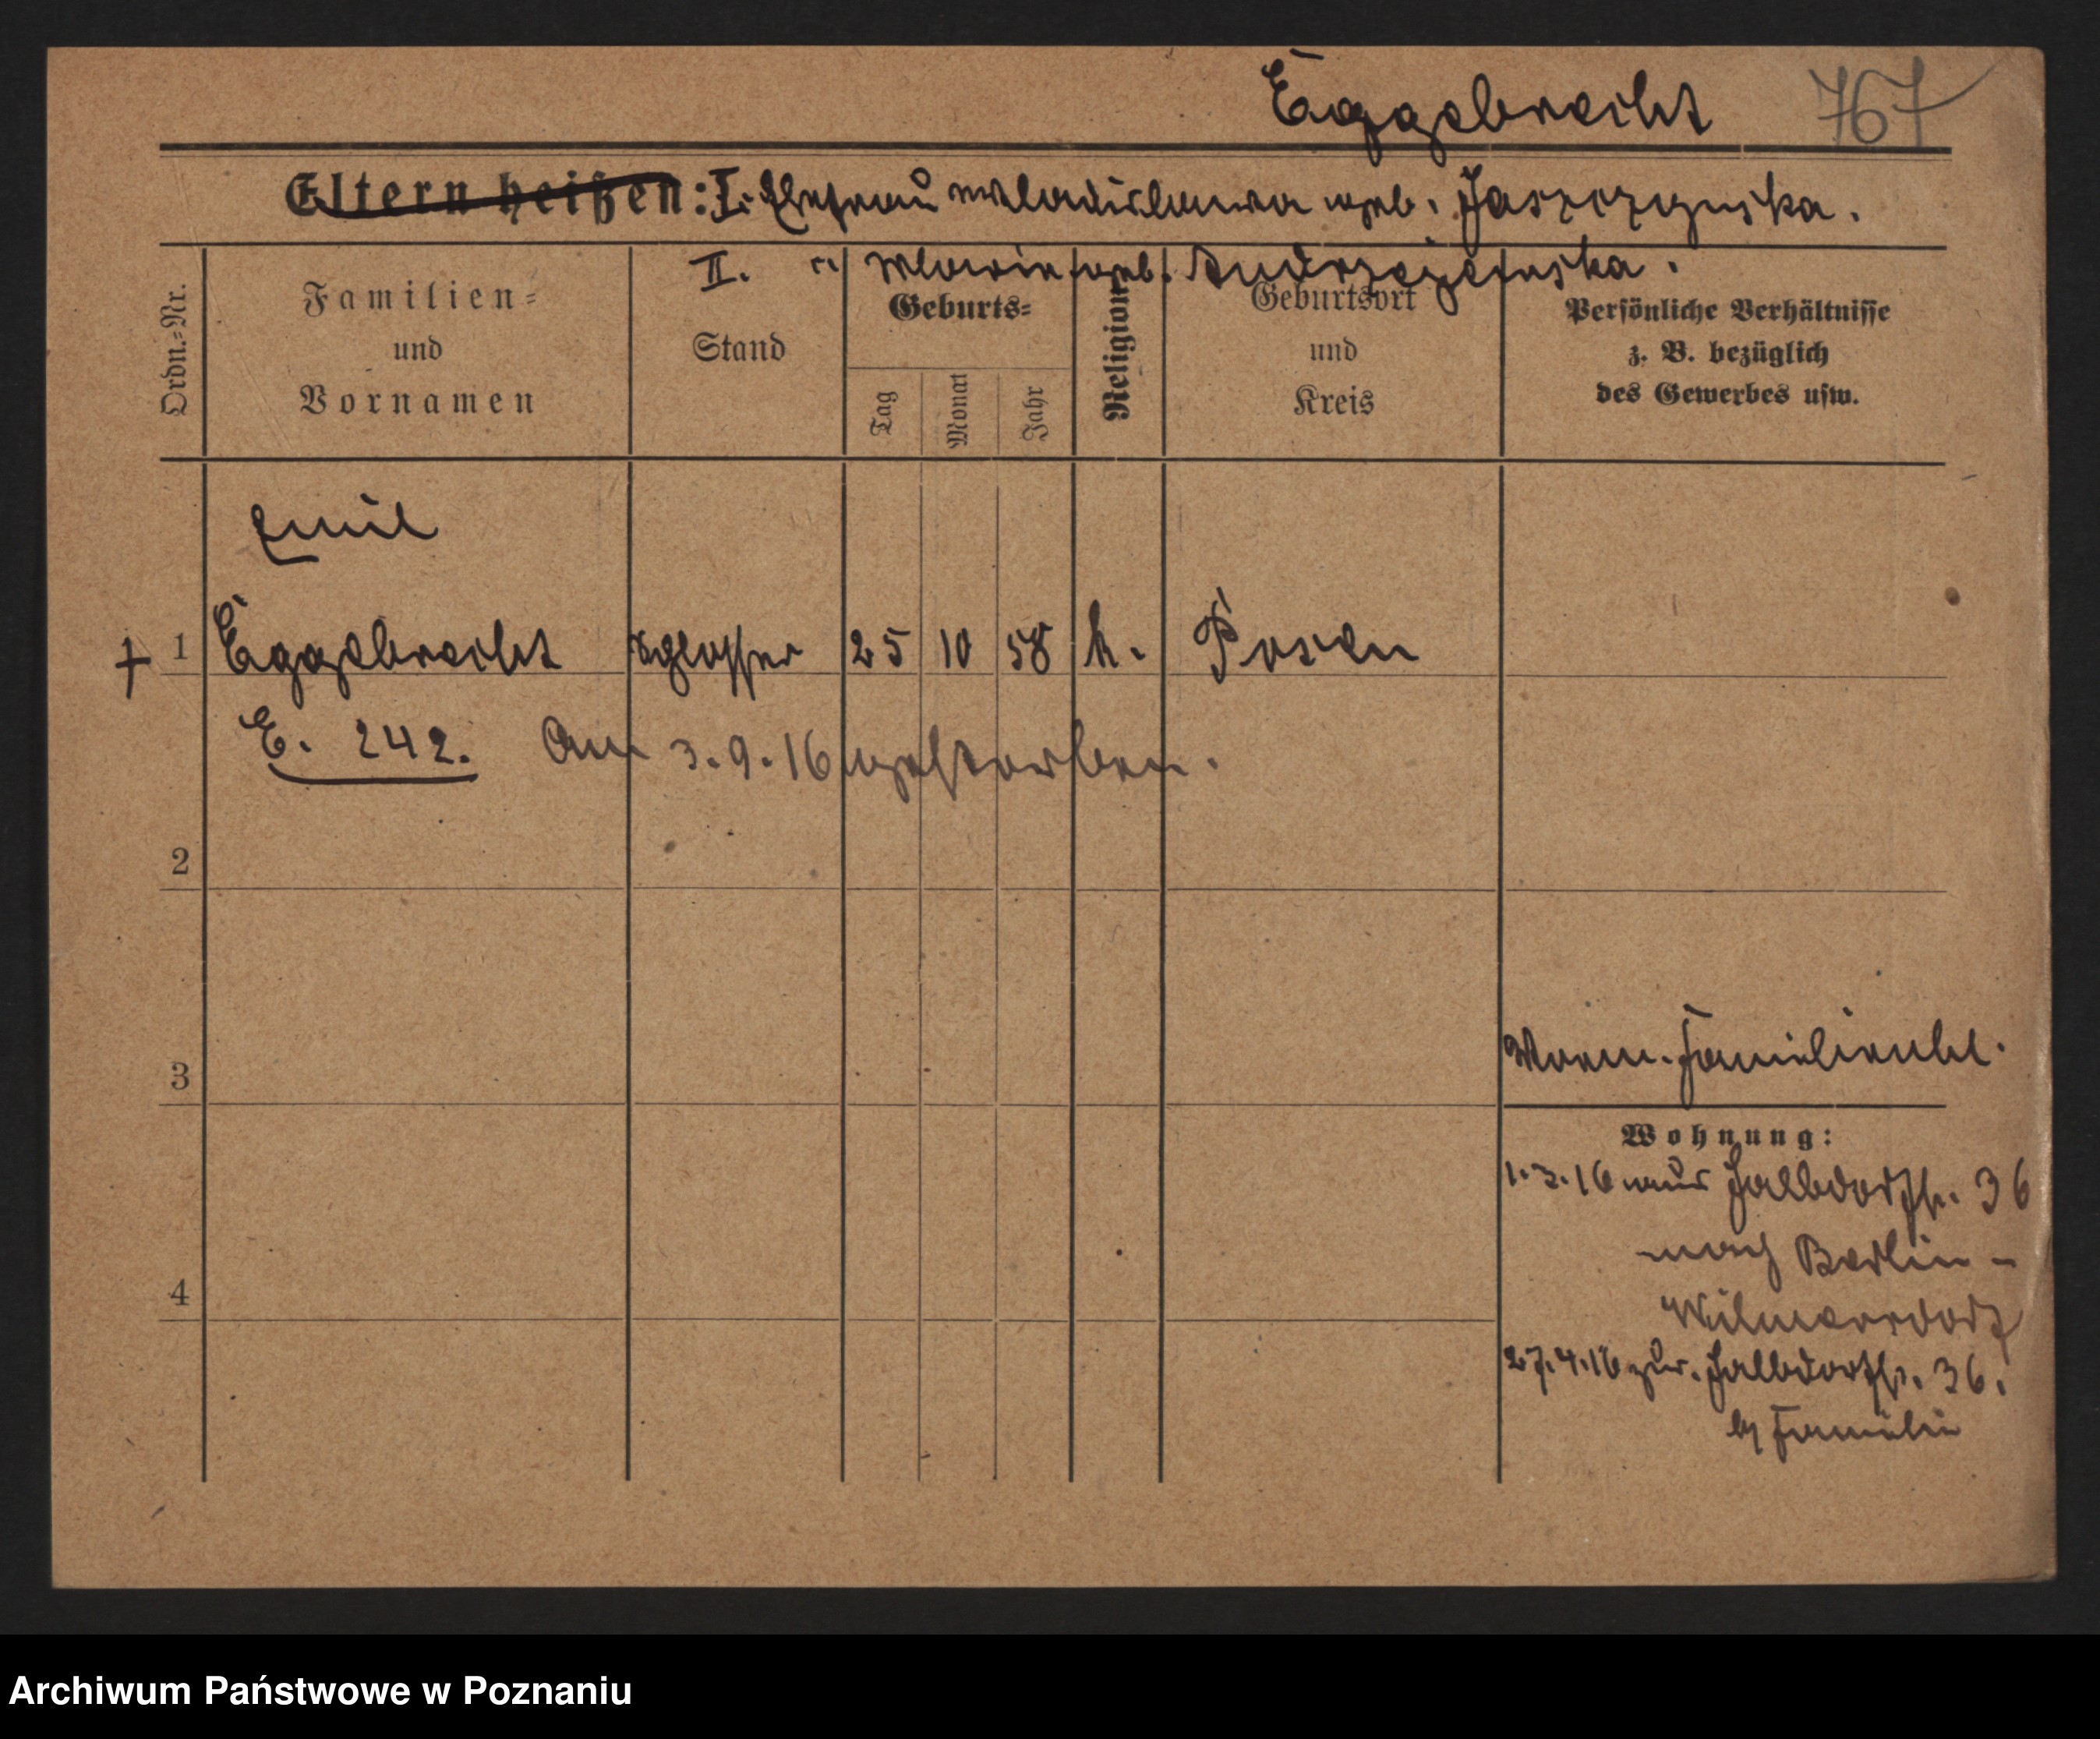 Eggebrecht 767
Eltern heißen: I. Ehefrau Wladislawa geb. Jaszczynska.
II. " Maria geb. Andrzejewska.
Ordn.-Nr.
Familien-
und
Vornamen
Stand
Geburts-
Tag
Monat
Jahr
Religion
Geburtsort
und
Kreis
Persönliche Verhältnisse
z. B. bezüglich
des Gewerbes usw.
Emil
† 1 Eggebrecht Schlosser 25 10 58 k. Posen
E. 242. Am 3.9.16 gestorben.
2
3
Familienbl.
Wohnung:
1.3.16 aus 36
nach Berlin-
Wilmersdorf
4
27.4.16 zur. 36.
Familie
Archiwum Państwowe w Poznaniu